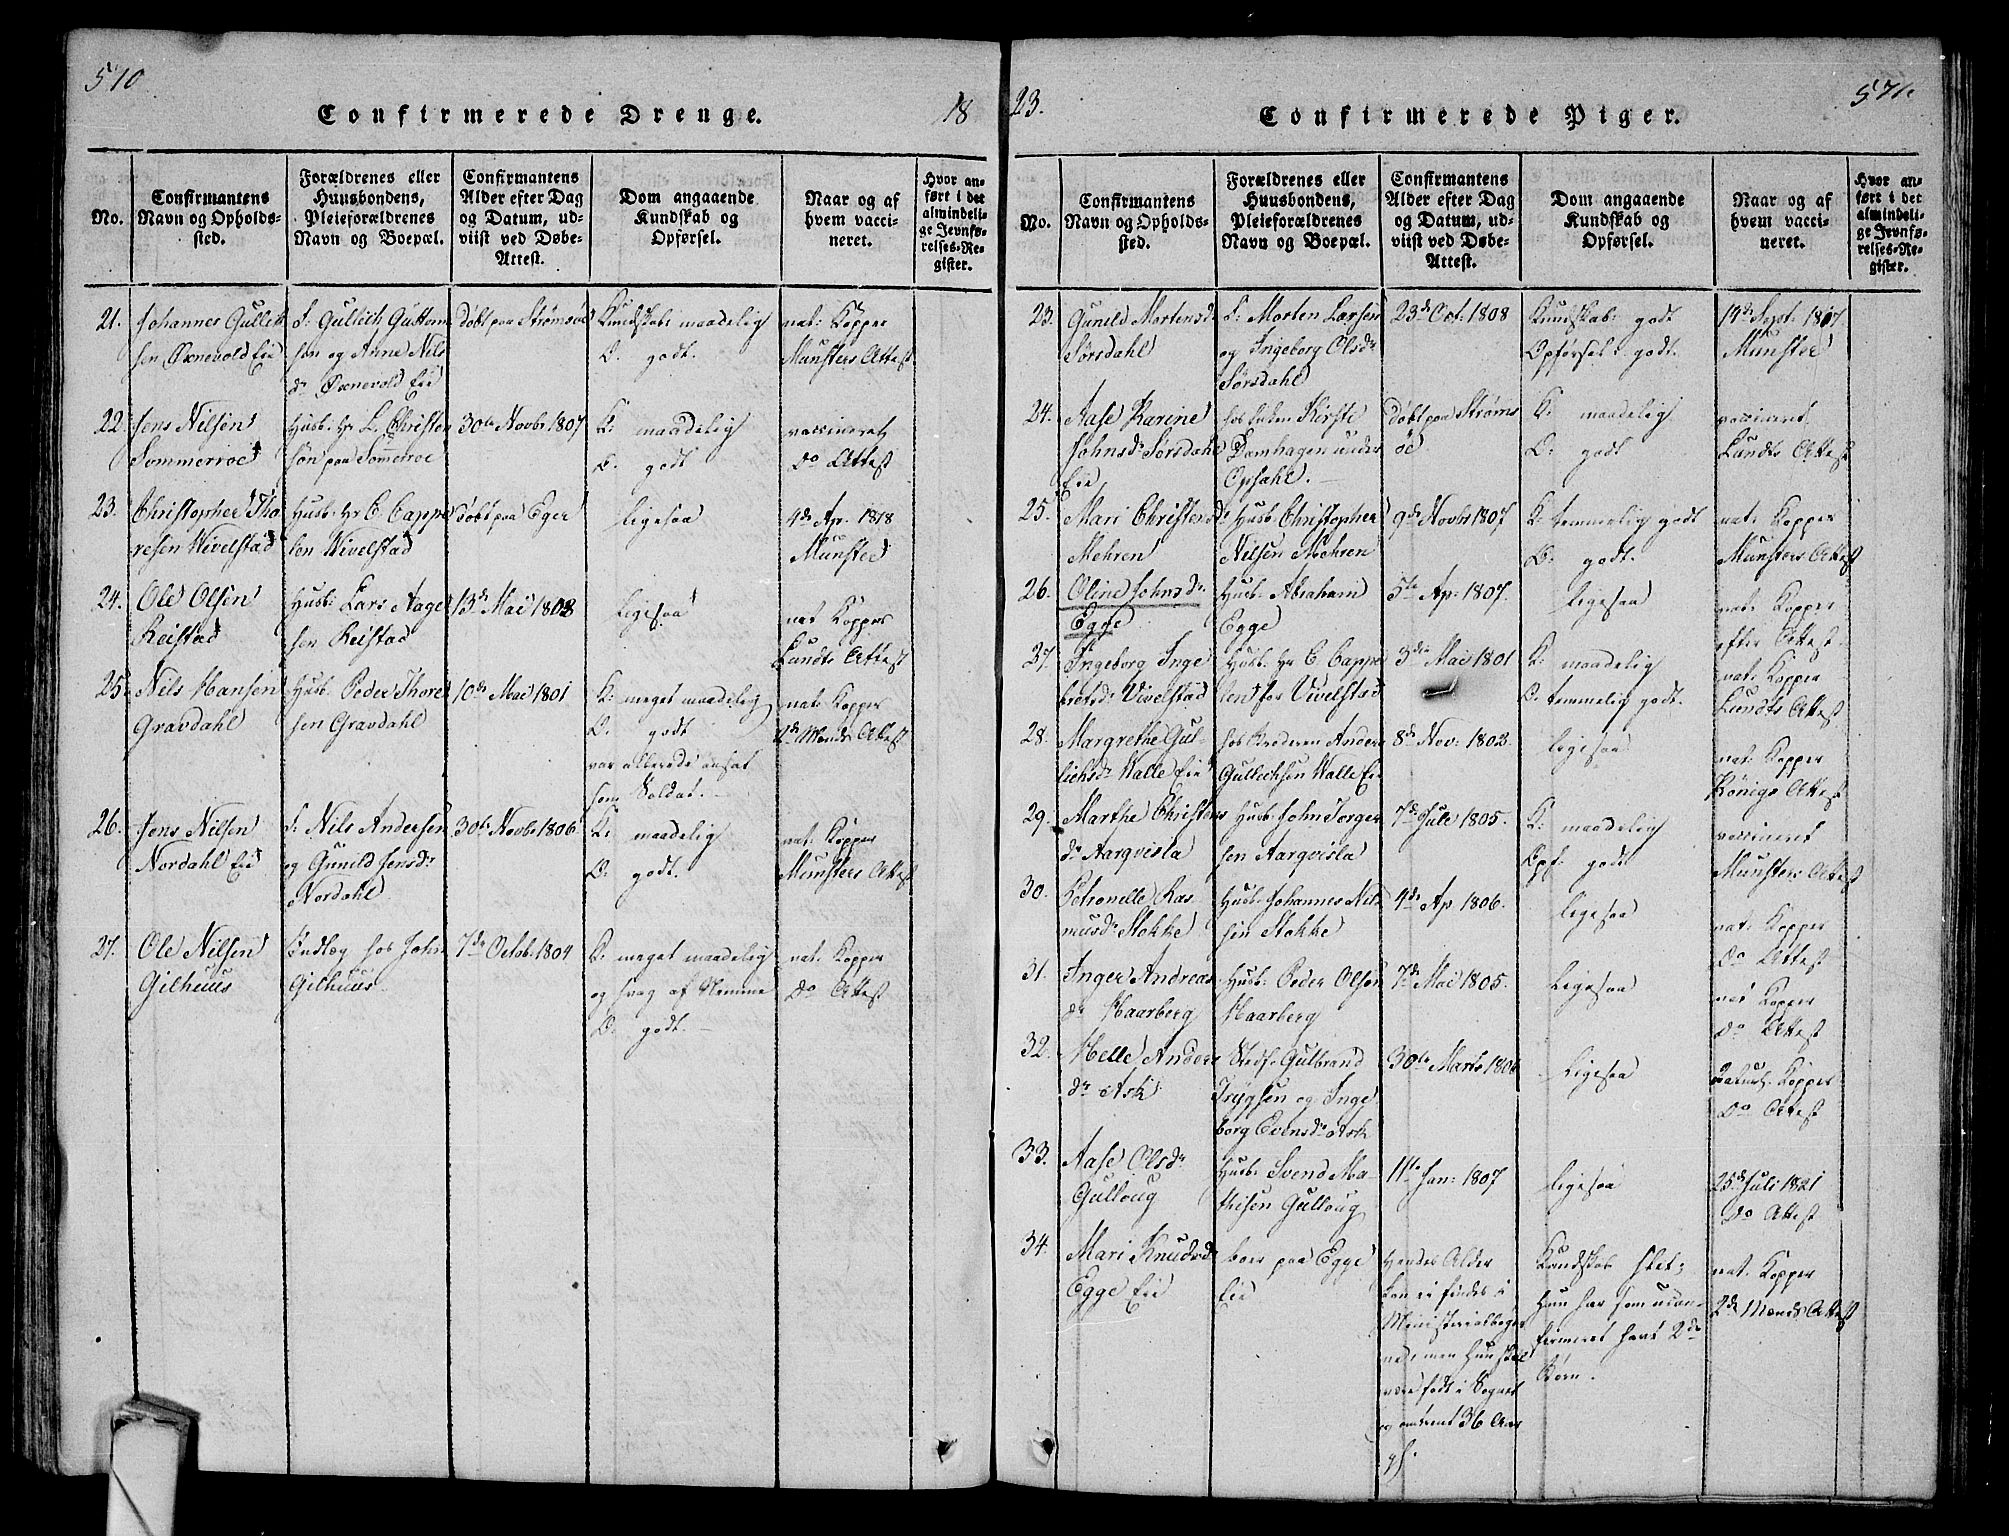 570
Confirmerede Drenge.
18
No.
Confirmantens
Navn og Opholds-
sted.
Forældrenes eller
Huusbondens,
Pleieforældrenes
Navn og Boepæl.
Confirmantens
Alder efter Dag
og Datum, ud-
viist ved Døbe-
Attest.
Dom angaaende
Kundskab og
Opførsel.
Naar og af
hvem vacci-
neret.
Hvor an-
ført i det
almindeli-
ge Jevnfø-
relses-Re-
gister.
21.
Johannes Gullik
sen Øxnevold Eie
F. Gullich Guttorm
sen og Anne Nils
dr Øxnevold Eie
døbt paa Strømsøe
Kundskab: maadelig
O. godt.
nat: Kopper
Munsters Attest
22.
Jens Nilsen
Sommerroe
Husb. Hr L. Christen
sen paa Sommerroe
30te Novbr 1807
K: maadelig
O. godt
vaccineret
Do Attest
23.
Christopher Tho
resen Wivelstad
Husb: Hr C. Cappe
len Wivelstad
døbt paa Eger
ligesaa
4de Ap. 1818
Munster
24.
Ole Olsen
Reistad
Husb: Lars Aage
sen Reistad
13de Mai 1803
ligesaa
nat Kopper
Lundts Attest
25.
Nils Hansen
Gravdahl
Husb. Peder Thore
sen Gravdahl
10de Mai 1801
K: meget maadelig
O. godt
var allerede ansat
som Soldat.
nat: Kopper
2de Mænds Attest
26.
Jens Nilsen
Nordahl Eie
F: Nils Andersen
og Gunild Jensdr
Nordahl
30te Novbr 1806
K: maadelig
O. godt.
nat: Kopper
Munsters Attest
27.
Ole Nilsen
Gilhuus
Indlæg hos John
Gilhuus.
7de Octob. 1804
K. meget maadelig
og svag af Nemme
O. godt.
nat: Kopper
Do Attest
23.
571.
Confirmerede Piger.
No.
Confirmantens
Navn og Opholds-
sted.
Forældrenes eller
Huusbondens,
Pleieforældrenes
Navn og Boepæl.
Confirmantens
Alder efter Dag
og Datum, ud-
viist ved Døbe-
Attest.
Dom angaaende
Kundskab og
Opførsel.
Naar og af
hvem vacci-
neret.
Hvor an-
ført i det
almindeli-
ge Jevnfø-
relses-Re-
gister.
23.
Gunild Mortensd.
Sørsdahl
F: Morten Larsen
og Ingeborg Olsdr
Sørsdahl
23de Oct: 1808
Kundskab: godt
Opførsel: godt.
14de Sept: 1817
Munster
24.
Aase Karine
Johnsdr Sørsdahl
Eie
hos Enken Kirste
Damhagen under
Opsahl.
døbt paa Strøms
øe
K: maadelig
O: godt
vaccineret
Lundts Attest
25.
Mari Christensdr
Mehren
Husb: Christopher
Nilsen Mehren
9de Novbr 1807
K: temmelig godt
O: godt.
nat: Kopper
Munsters Attest
26.
Oline Johnsdr
Egge
Husb: Abraham
Egge
5te Ap: 1807.
ligesaa
nat: Kopper
efter Attest
27.
Ingeborg Inge
bretsdr Vivelstad
Husb: Hr C. Cappe
len for Vivelstad
3die Mai 1801
K: maadelig
O. temmelig godt.
nat: Kopper
Lundts Attest
28.
Margrethe Gul-
lichsdr Walle Eie
hos Broderen Anders
Gullichsen Walle Ei
8de Nov: 1802
ligesaa
nat: Kopper
Königs Attest
29.
Marthe Christens
dr Aarqvisla
Husb: John Torger
sen Aarqvisla
7de Jule 1805.
K: maadelig
Opf: godt
vaccineret
Munsters Attest
30.
Petronelle Ras
musdr Stokke
Husb. Johannes Nil
sen Stokke
4de Ap 1806.
ligesaa
nat. Kopper
Do Attest
31.
Inger Andreas
dr Haarberg
Husb: Peder Olsen
Haarberg
7de Mai 1805.
ligesaa
nat Kopper
Do Attest
32.
Helle Anders
dr Ask
Stedf. Gulbrand
Trygsen og Inge
borg Evensdr Ask
30te Marts 1806
ligesaa
naturl. Kopper
Do Attest
33.
Aase Olsdr
Gulloug
Husb: Svend Ma-
thisen Gulloug
11te Jan: 1807
ligesaa
25de Juli 1821
Do Attest
34.
Mari Knudsdr
Egge Eie
boer paa Egge
Eie
Hendes Alder
kan ei findes i
Ministerialbøger
ne, men hun skal
være født i Sognet
og omtrent 36 Aar
gl.
Kundskab slet;
hun har som ucon-
firmeret havt 2de
Børn.
nat. Kopper
2de Mænds Attest